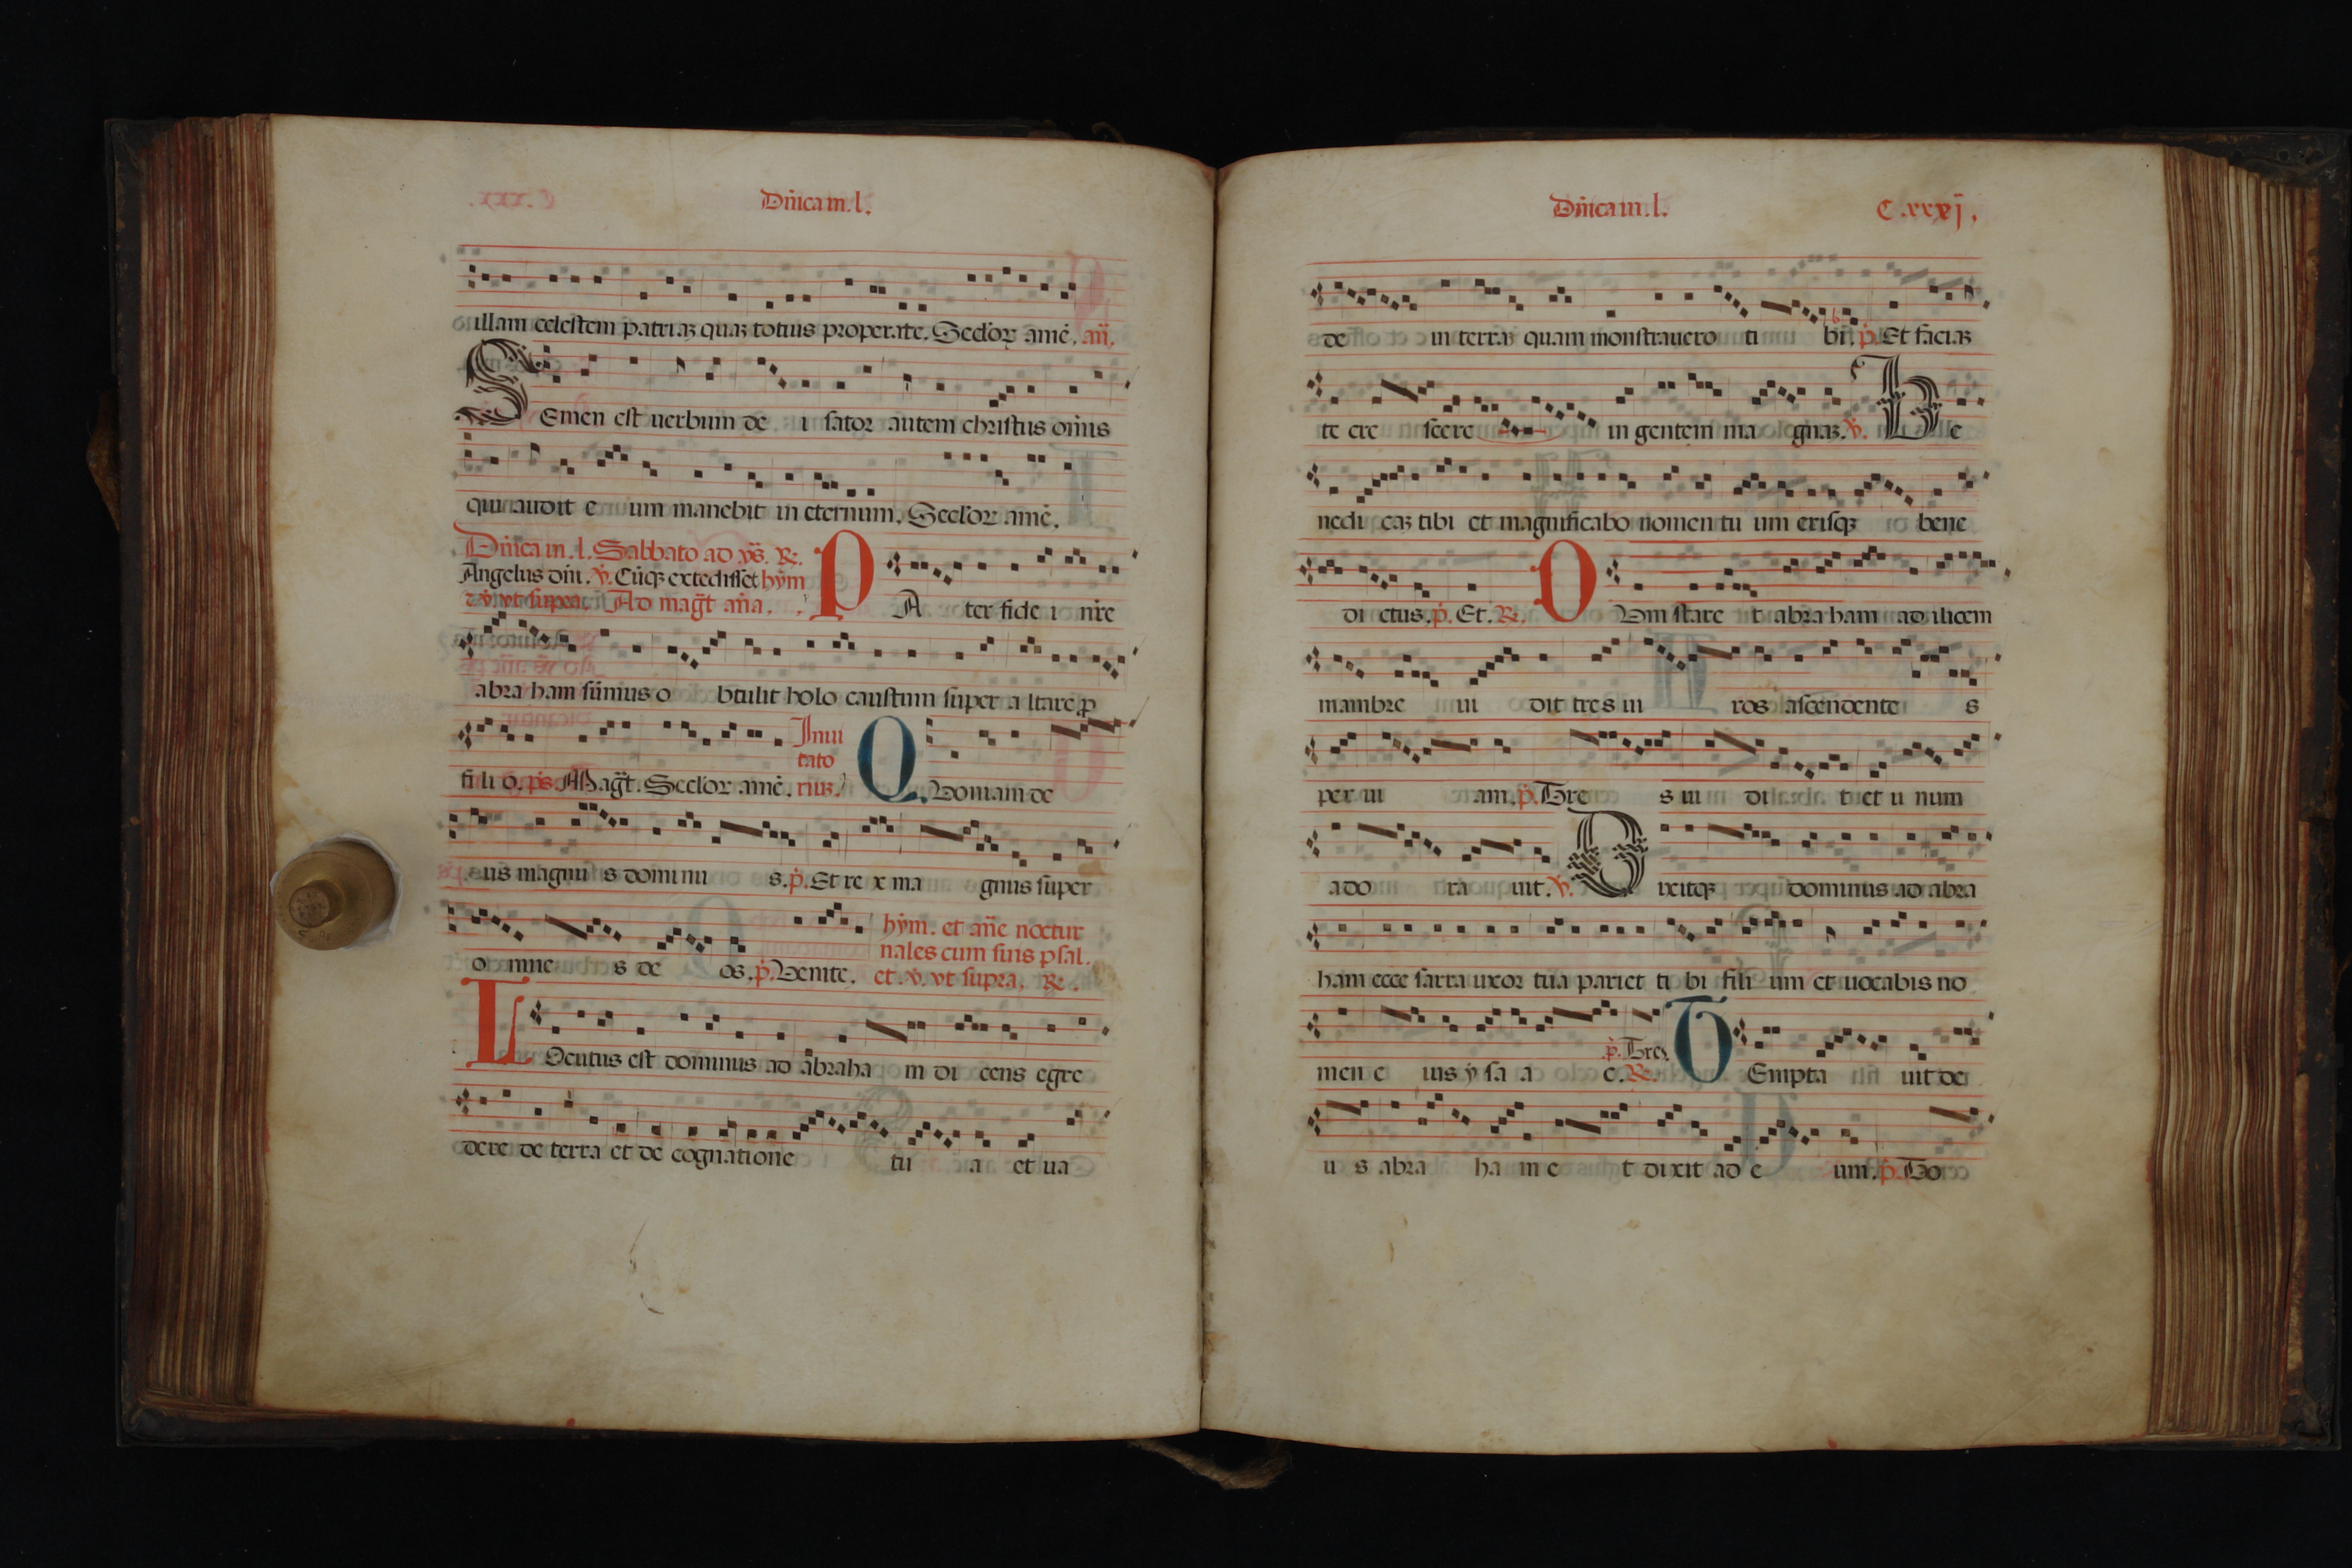 Dn̄ica in .l.
illam celestem patriaꝫ quaꝫ totius properate. Secl'oꝝ amē. an̄.
SEmen est uerbum de i sator autem christus om̄is
qui audit e um manebit in eternum. Secl'oꝝ amē.
Dn̄ica in .l. Sabbato ad vs̄. ℟.
Angelus dn̄i. ℣. Cūqꝫ extedisset hym̄
Ad maḡt an̄a.
PA ter fide i nr̄e
abra ham summus o btulit holo caustum super a ltare p
fi li o. ps. Maḡt. Secl'oꝝ amē.
Inui
tato
riuꝫ.
QUoniam de
us magnu s dominu s. p̄. Et re x ma gnus super
o mne s de os. p̄. Uenite.
hym̄. et an̄e noctur
nales cum suis psal.
et. ℣. vt supra. ℟.
LOcutus est dominus ad abraha m di cens egre
dere de terra et de cognatione tu a et ua
Dn̄ica in .l. C.xxxj.
de in terraꝫ quam monstrauero ti bi. p̄. Et faciaꝫ
te cre scere in gentem ma gnaꝫ. ℣. Be
nedi caꝫ tibi et magnificabo nomen tu um erisqꝫ bene
di ctus. p̄. Et. ℟. DUm stare t abra ham ad ilicem
mambre ui dit tres ui ros ascendente s
per ui am. p̄. Tre s ui di t et u num
ado ra uit. ℣. Dixitqꝫ dominus ad abra
ham ecce sarra uxor tua pariet ti bi fili um et uocabis no
men e ius y sa a c. ℟. p̄. Tres. TEmpta uit de
u s abra ha m e t dixit ad e um. p̄. To